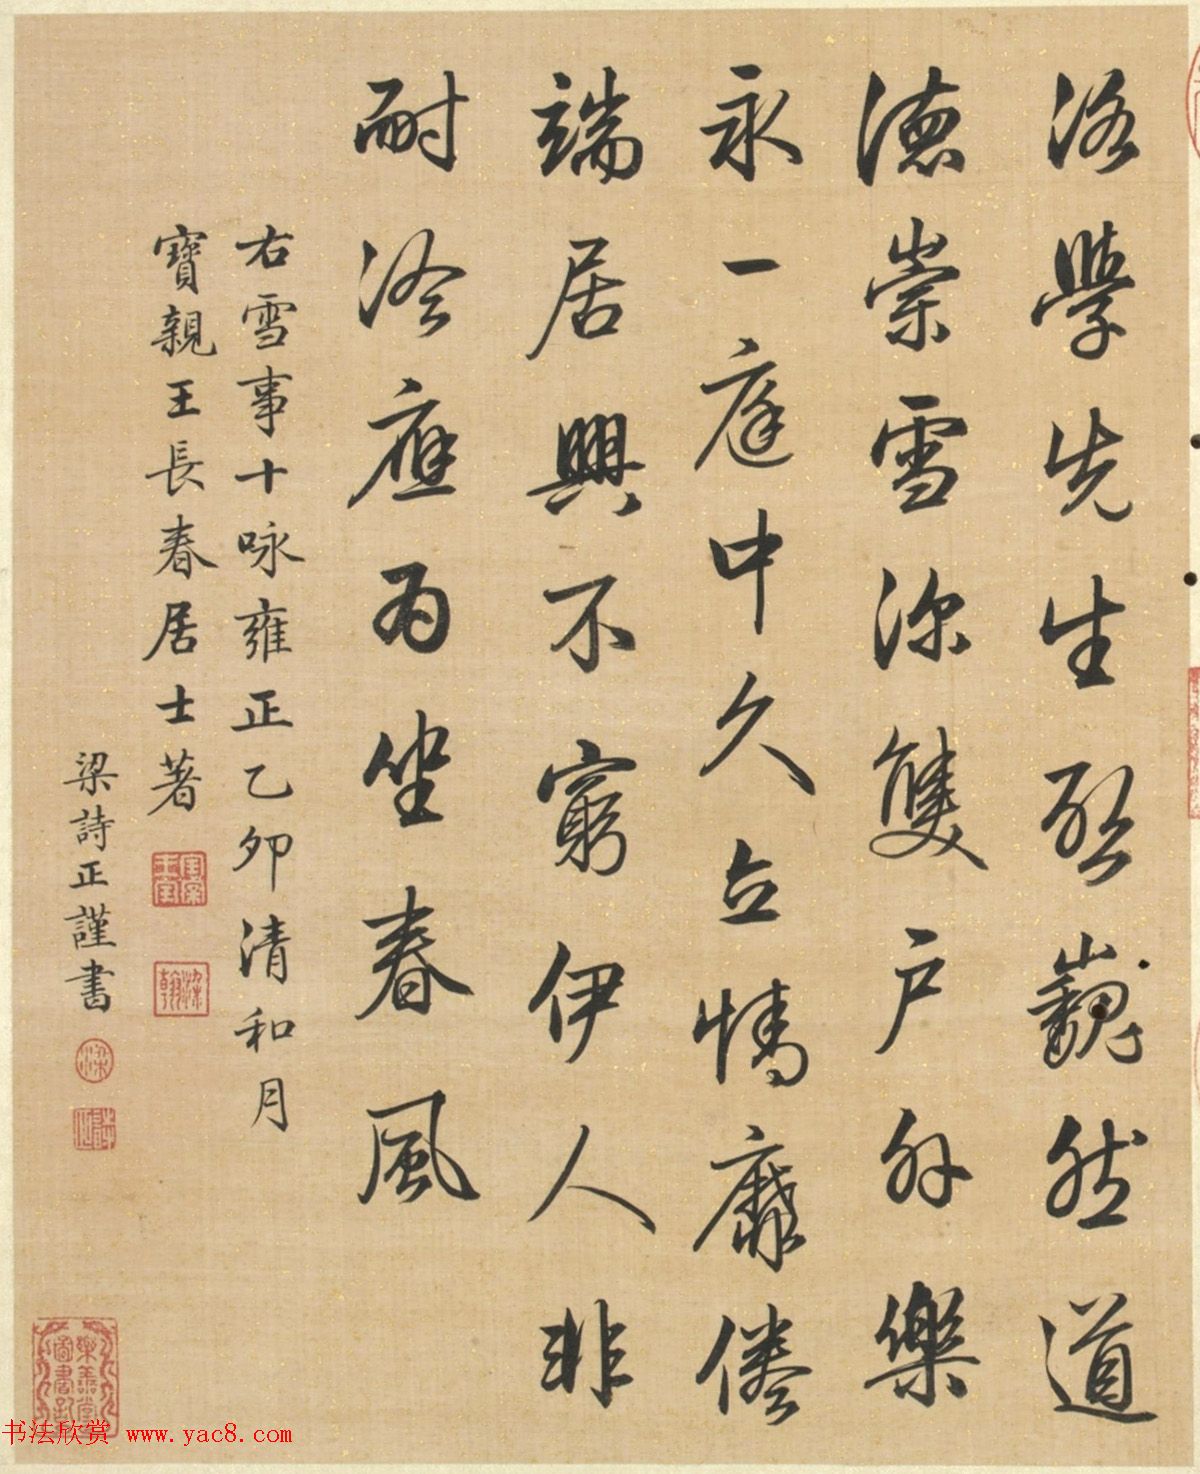 洛學先生啟巍然道
德崇雪深雙戶外樂
永一庭中久立情靡倦
端居興不窮伊人非
耐冷應為坐春風
右雪事十咏雍正乙卯清和月
寶親王長春居士著
梁詩正謹書
樂善堂圖書記
书法欣赏 www.yac8.com